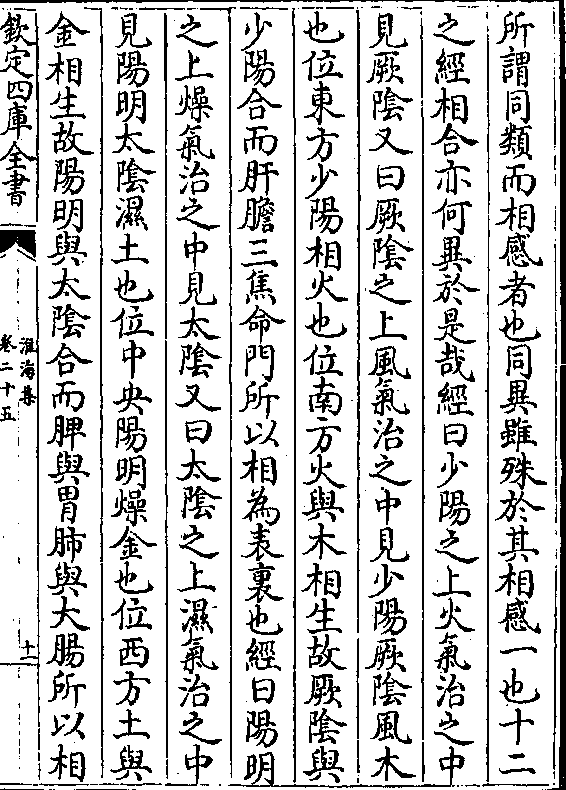 所謂同類而相感者也同異雖殊於其相感一也十二
之經相合亦何異於是哉經曰少陽之上火氣治之中
見厥陰又曰厥陰之上風氣治之中見少陽厥陰風木
也位東方少陽相火也位南方火與木相生故厥陰與
少陽合而肝膽三焦命門所以相為表裏也經曰陽明
之上燥氣治之中見太陰又曰太陰之上濕氣治之中
見陽明太陰濕土也位中央陽明燥金也位西方土與
金相生故陽明與太陰合而脾與胃肺與大腸所以相
欽定四庫全書
淮海集
卷二十五
十一